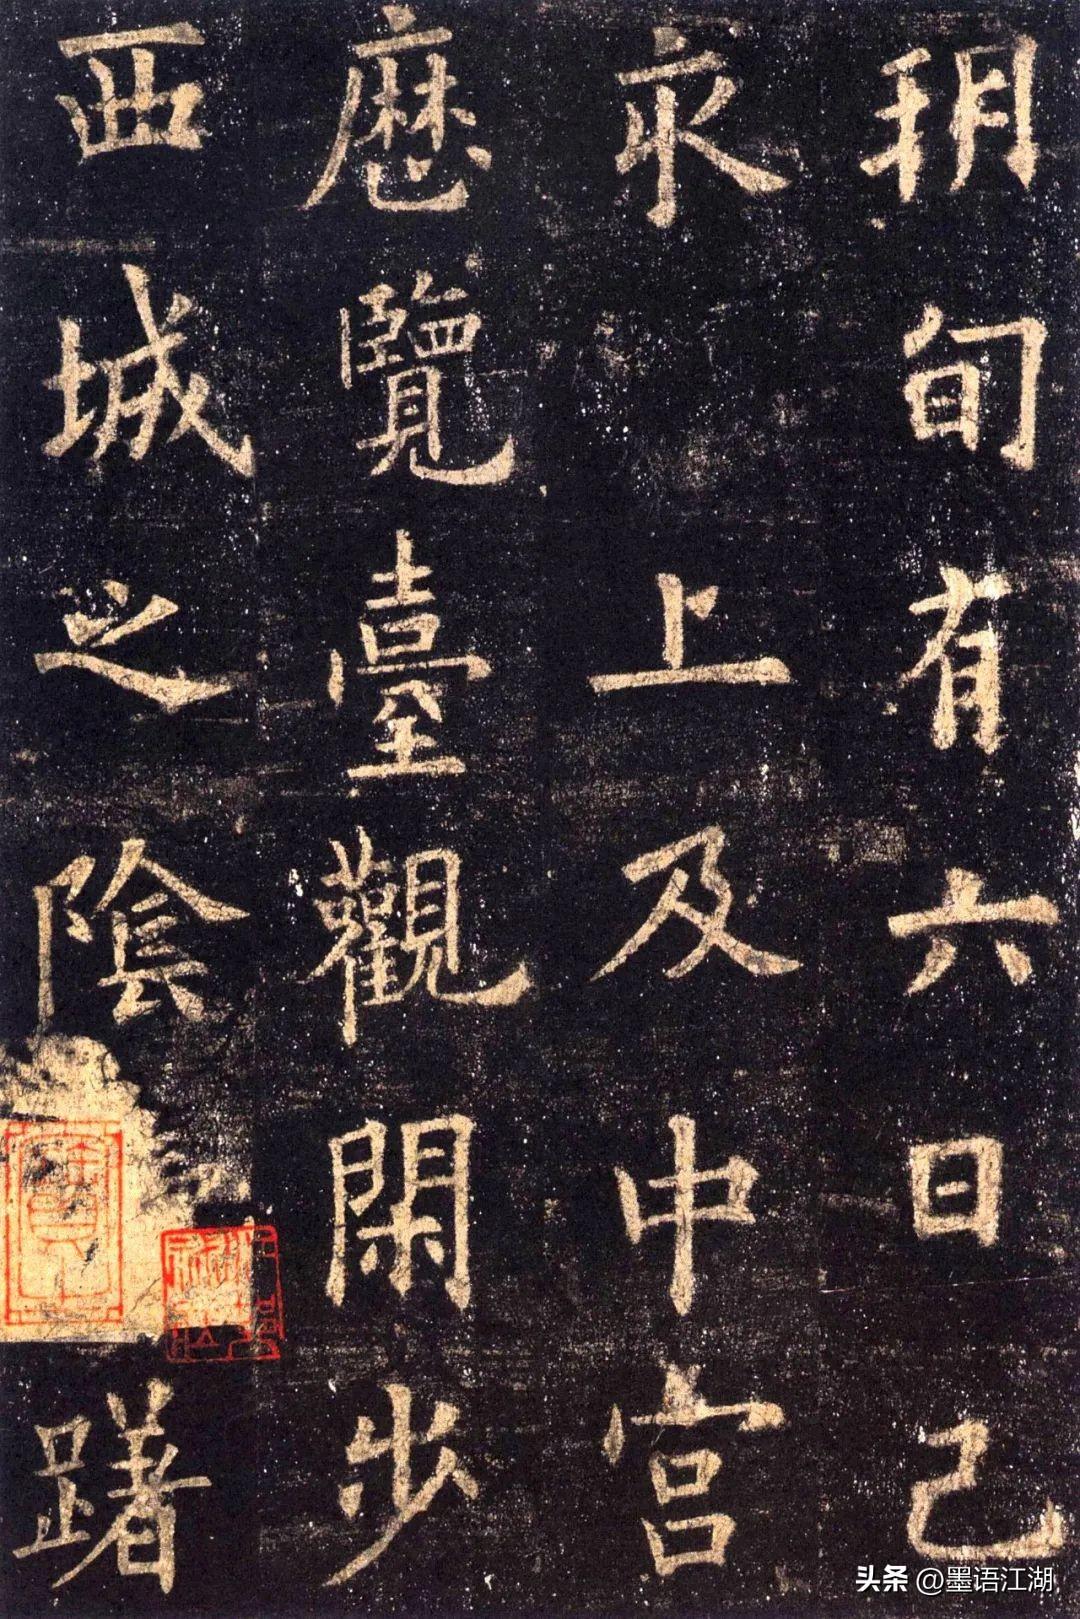 朔旬有六日己
亥上及中宫
歷覽臺觀閑步
西城之陰躇
头条 @墨语江湖